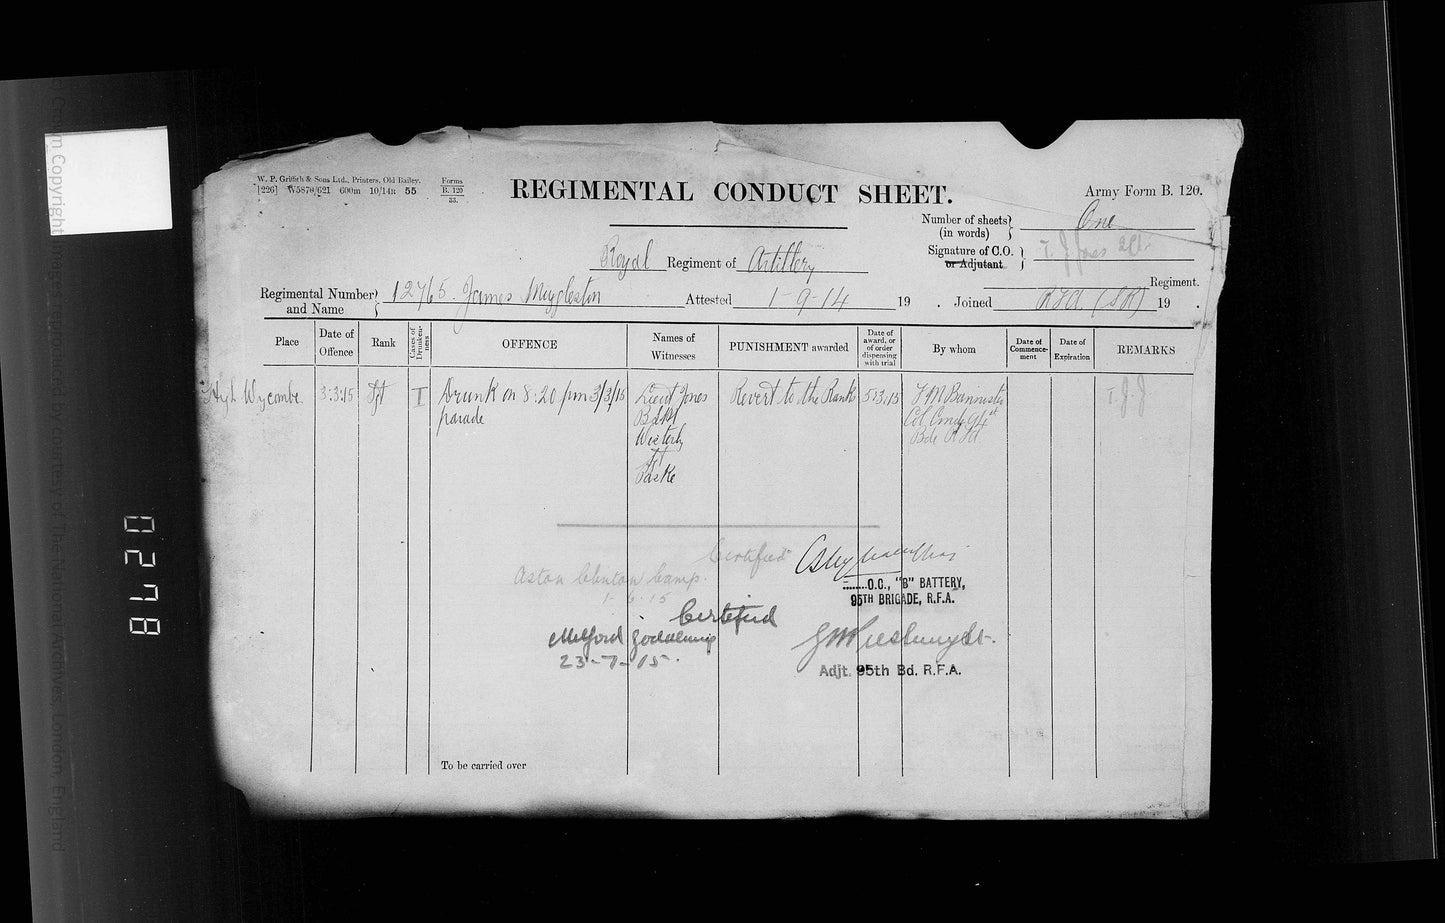 W. P. Griffith & Sons Ltd., Printers, Old Bailey.
[226] W5870/621 600m 10/14R 55
Forms
B. 120
33.
REGIMENTAL CONDUCT SHEET.
Army Form B. 120.
Number of sheets
(in words) } One
Signature of C.O.
or Adjutant }
Royal Regiment of Artillery
Regiment.
Regimental Number
and Name } 12765. James Muggleston Attested 1-9-14 19 . Joined RFA (SR) 19 .
Place
Date of Offence
Rank
Cases of Drunkenness
OFFENCE
Names of Witnesses
PUNISHMENT awarded
Date of award, or of order dispensing with trial
By whom
Date of Commencement
Date of Expiration
REMARKS
High Wycombe 3:3:15 Sgt I Drunk on 8:20 pm 3/3/15 Lieut Jones Revert to the Ranks 5:3:15 F M Bannister
parade
Col Comdg 94th
Bde RFA
Certified
Aston Clinton Camp.
1-6-15
O.C., "B" BATTERY,
95TH BRIGADE, R.F.A.
Certified
Milford Godalming
23-7-15.
Adjt. 95th Bd. R.F.A.
To be carried over
0278
Crown Copyright Images reproduced by courtesy of The National Archives, London, England